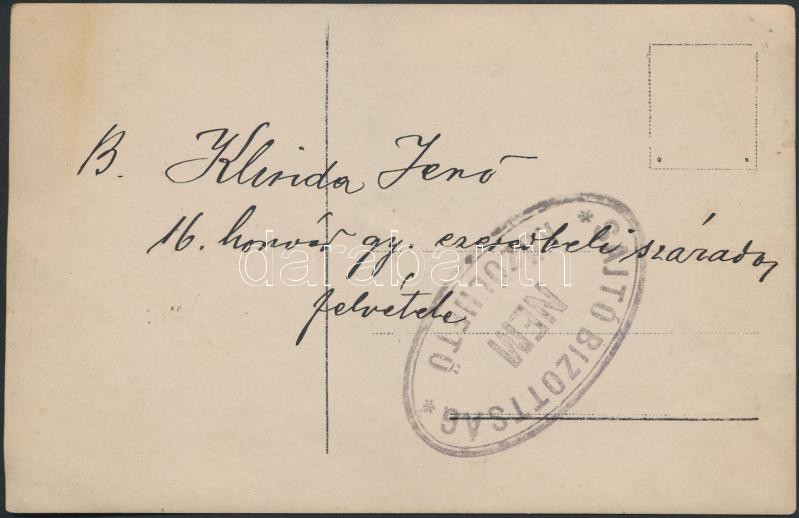 B. Klinda Jenő
16. honvéd gy. ezredbeli százados
felvétele
* SAJTÓ BIZOTTSÁG *
NEM
KÖZÖLHETŐ
darabanth